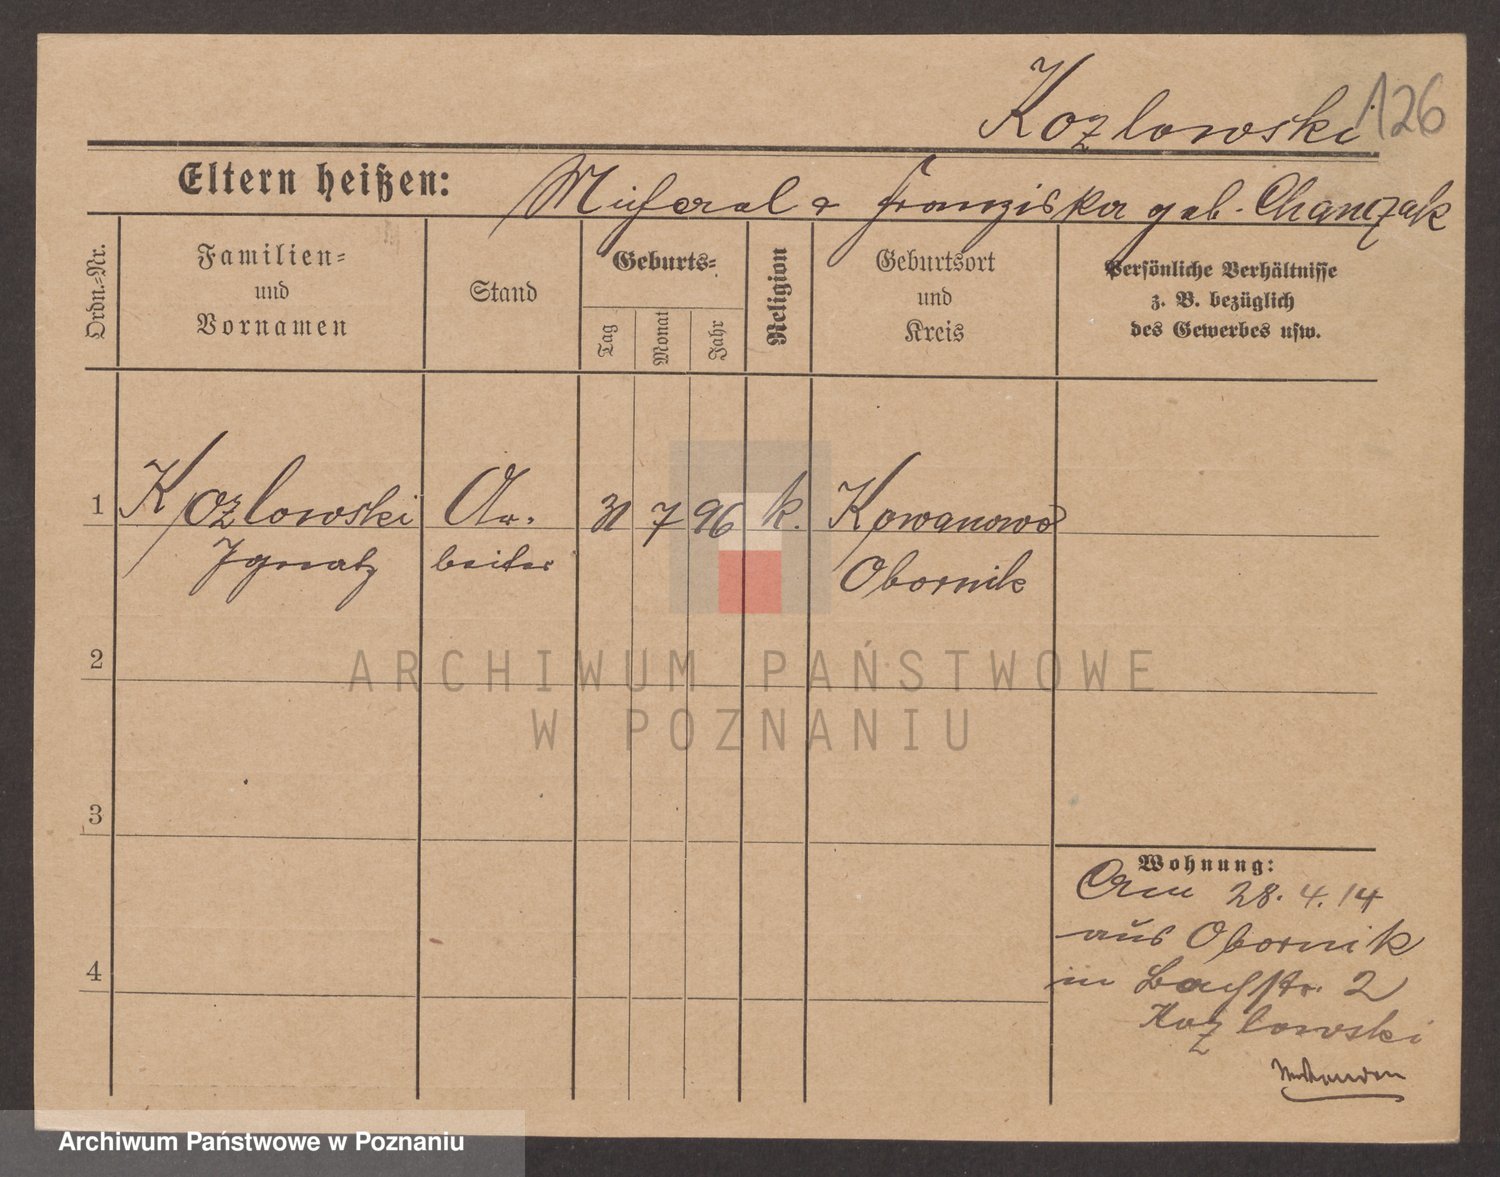 Kozlowski 126
Eltern heißen: Michael & Franziska geb. Chanczak
Ordn.-Nr.
Familien-
und
Vornamen
Stand
Geburts-
Tag
Monat
Jahr
Religion
Geburtsort
und
Kreis
Persönliche Verhältnisse
z. B. bezüglich
des Gewerbes usw.
1 Kozlowski Ar- 31 7 96 k. Kowanowo
Ignatz beiter Obornik
ARCHIWUM PAŃSTWOWE
W POZNANIU
2
3
4
Wohnung:
Am 28.4.14
aus Obornik
in Bachstr. 2
Kozlowski
Archiwum Państwowe w Poznaniu